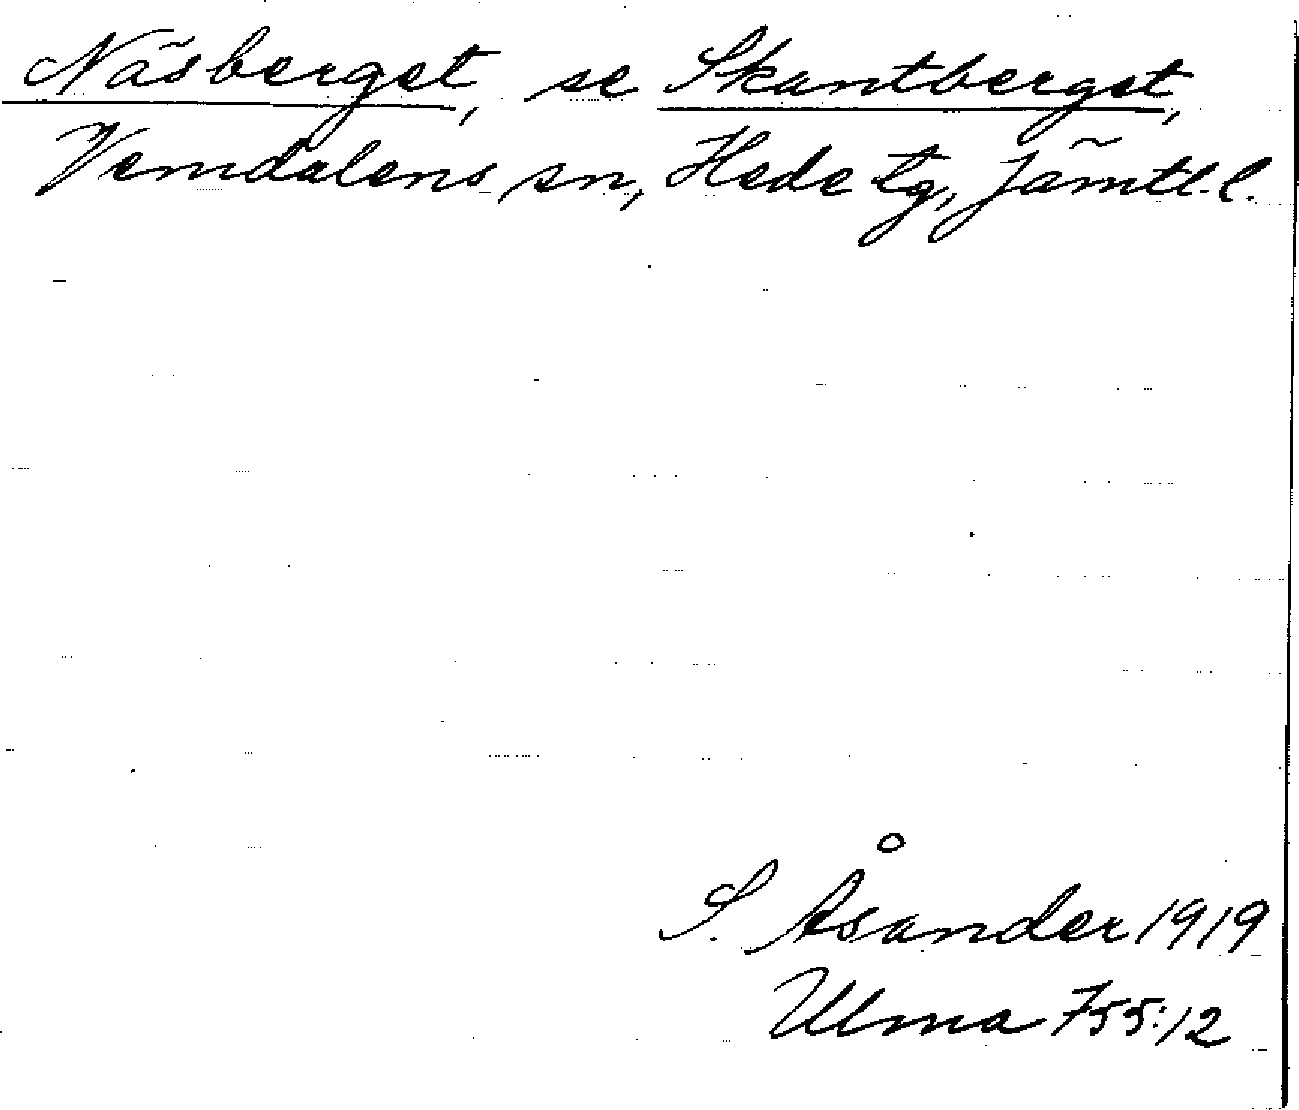 Näsberget, se Skantberget,
Vemdalens sn, Hede tg, Jämtl. l.
S. Åsander 1919
Ulma 755:12